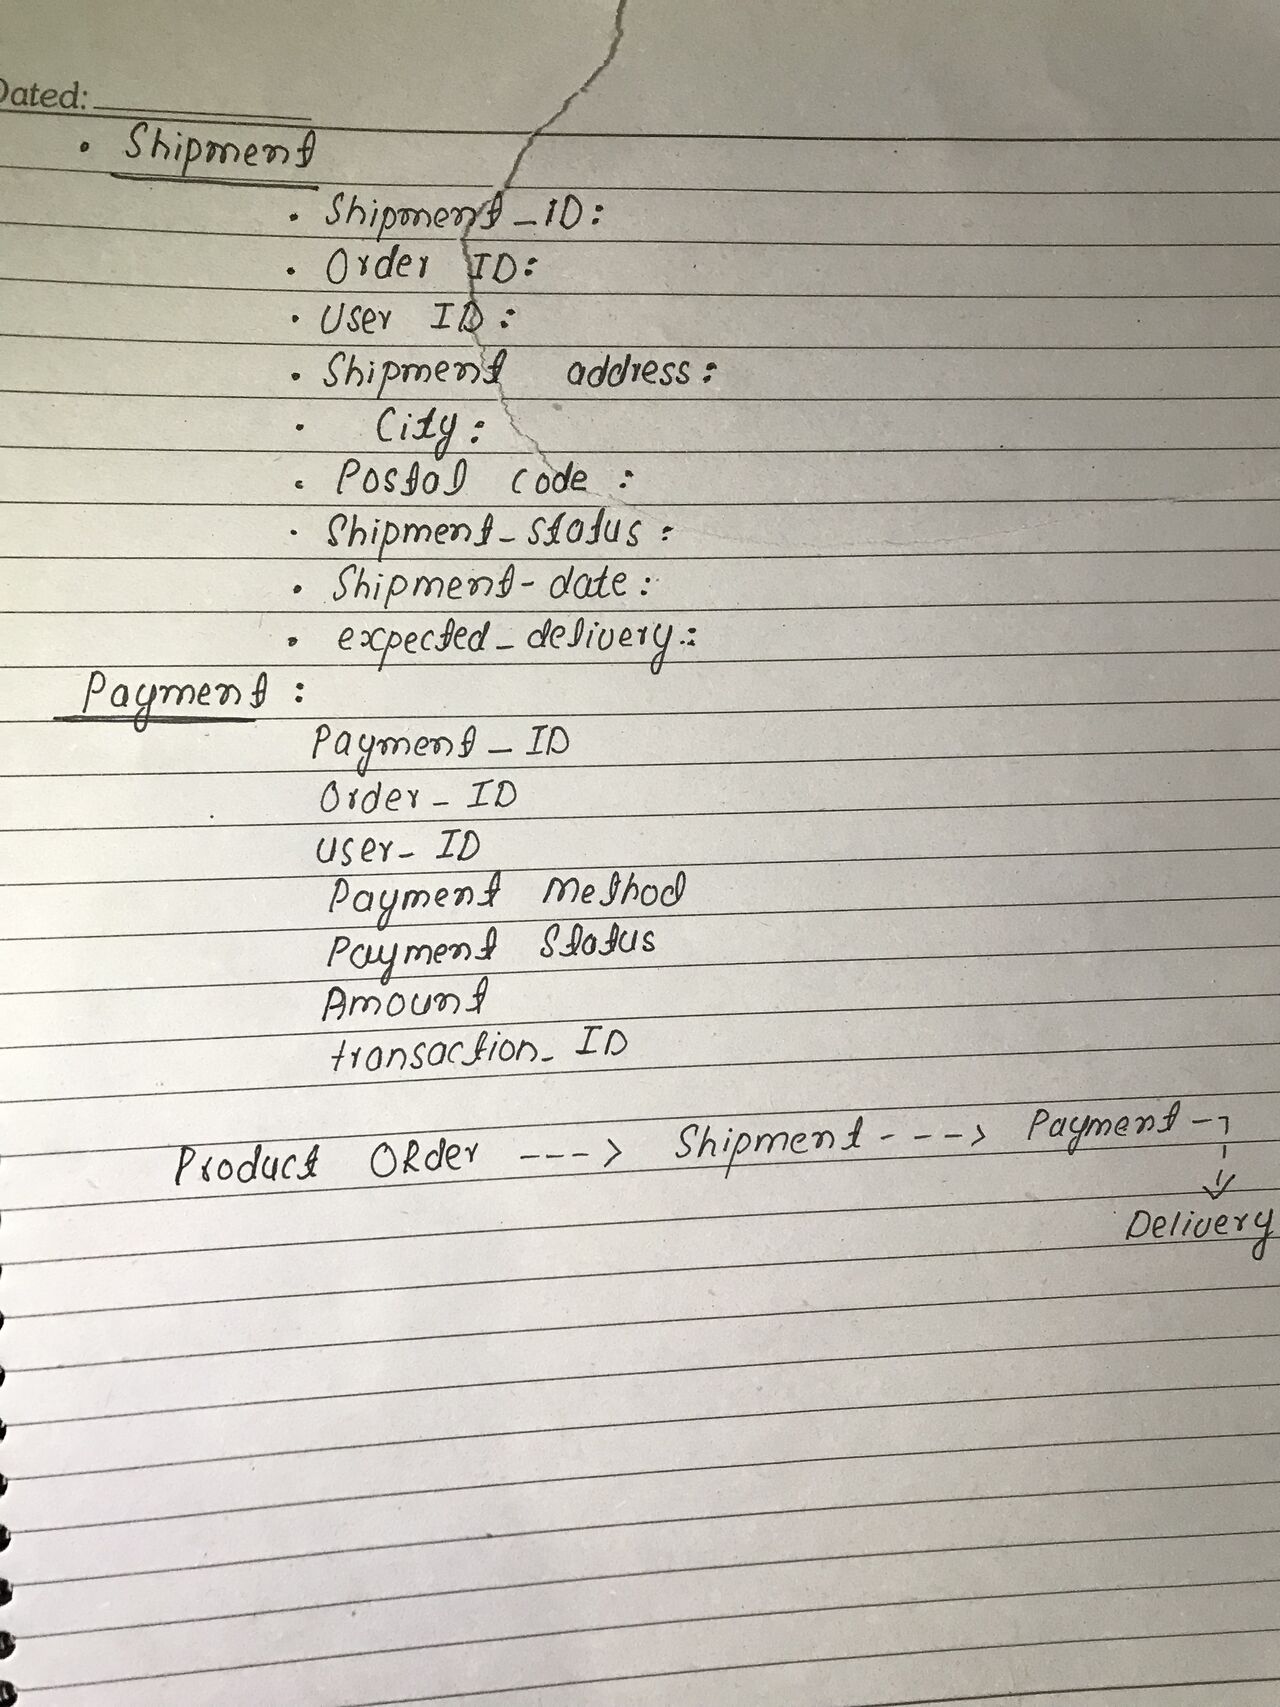 Dated:
• Shipment
• Shipment_ID:
• Order ID:
• User ID:
• Shipment address:
• City:
• Postal code:
• Shipment_status:
• Shipment-date:
• expected_delivery:
Payment:
Payment_ID
Order_ID
user_ID
Payment Method
Payment Status
Amount
transaction_ID
Product ORder ---> Shipment ---> Payment --
Delivery